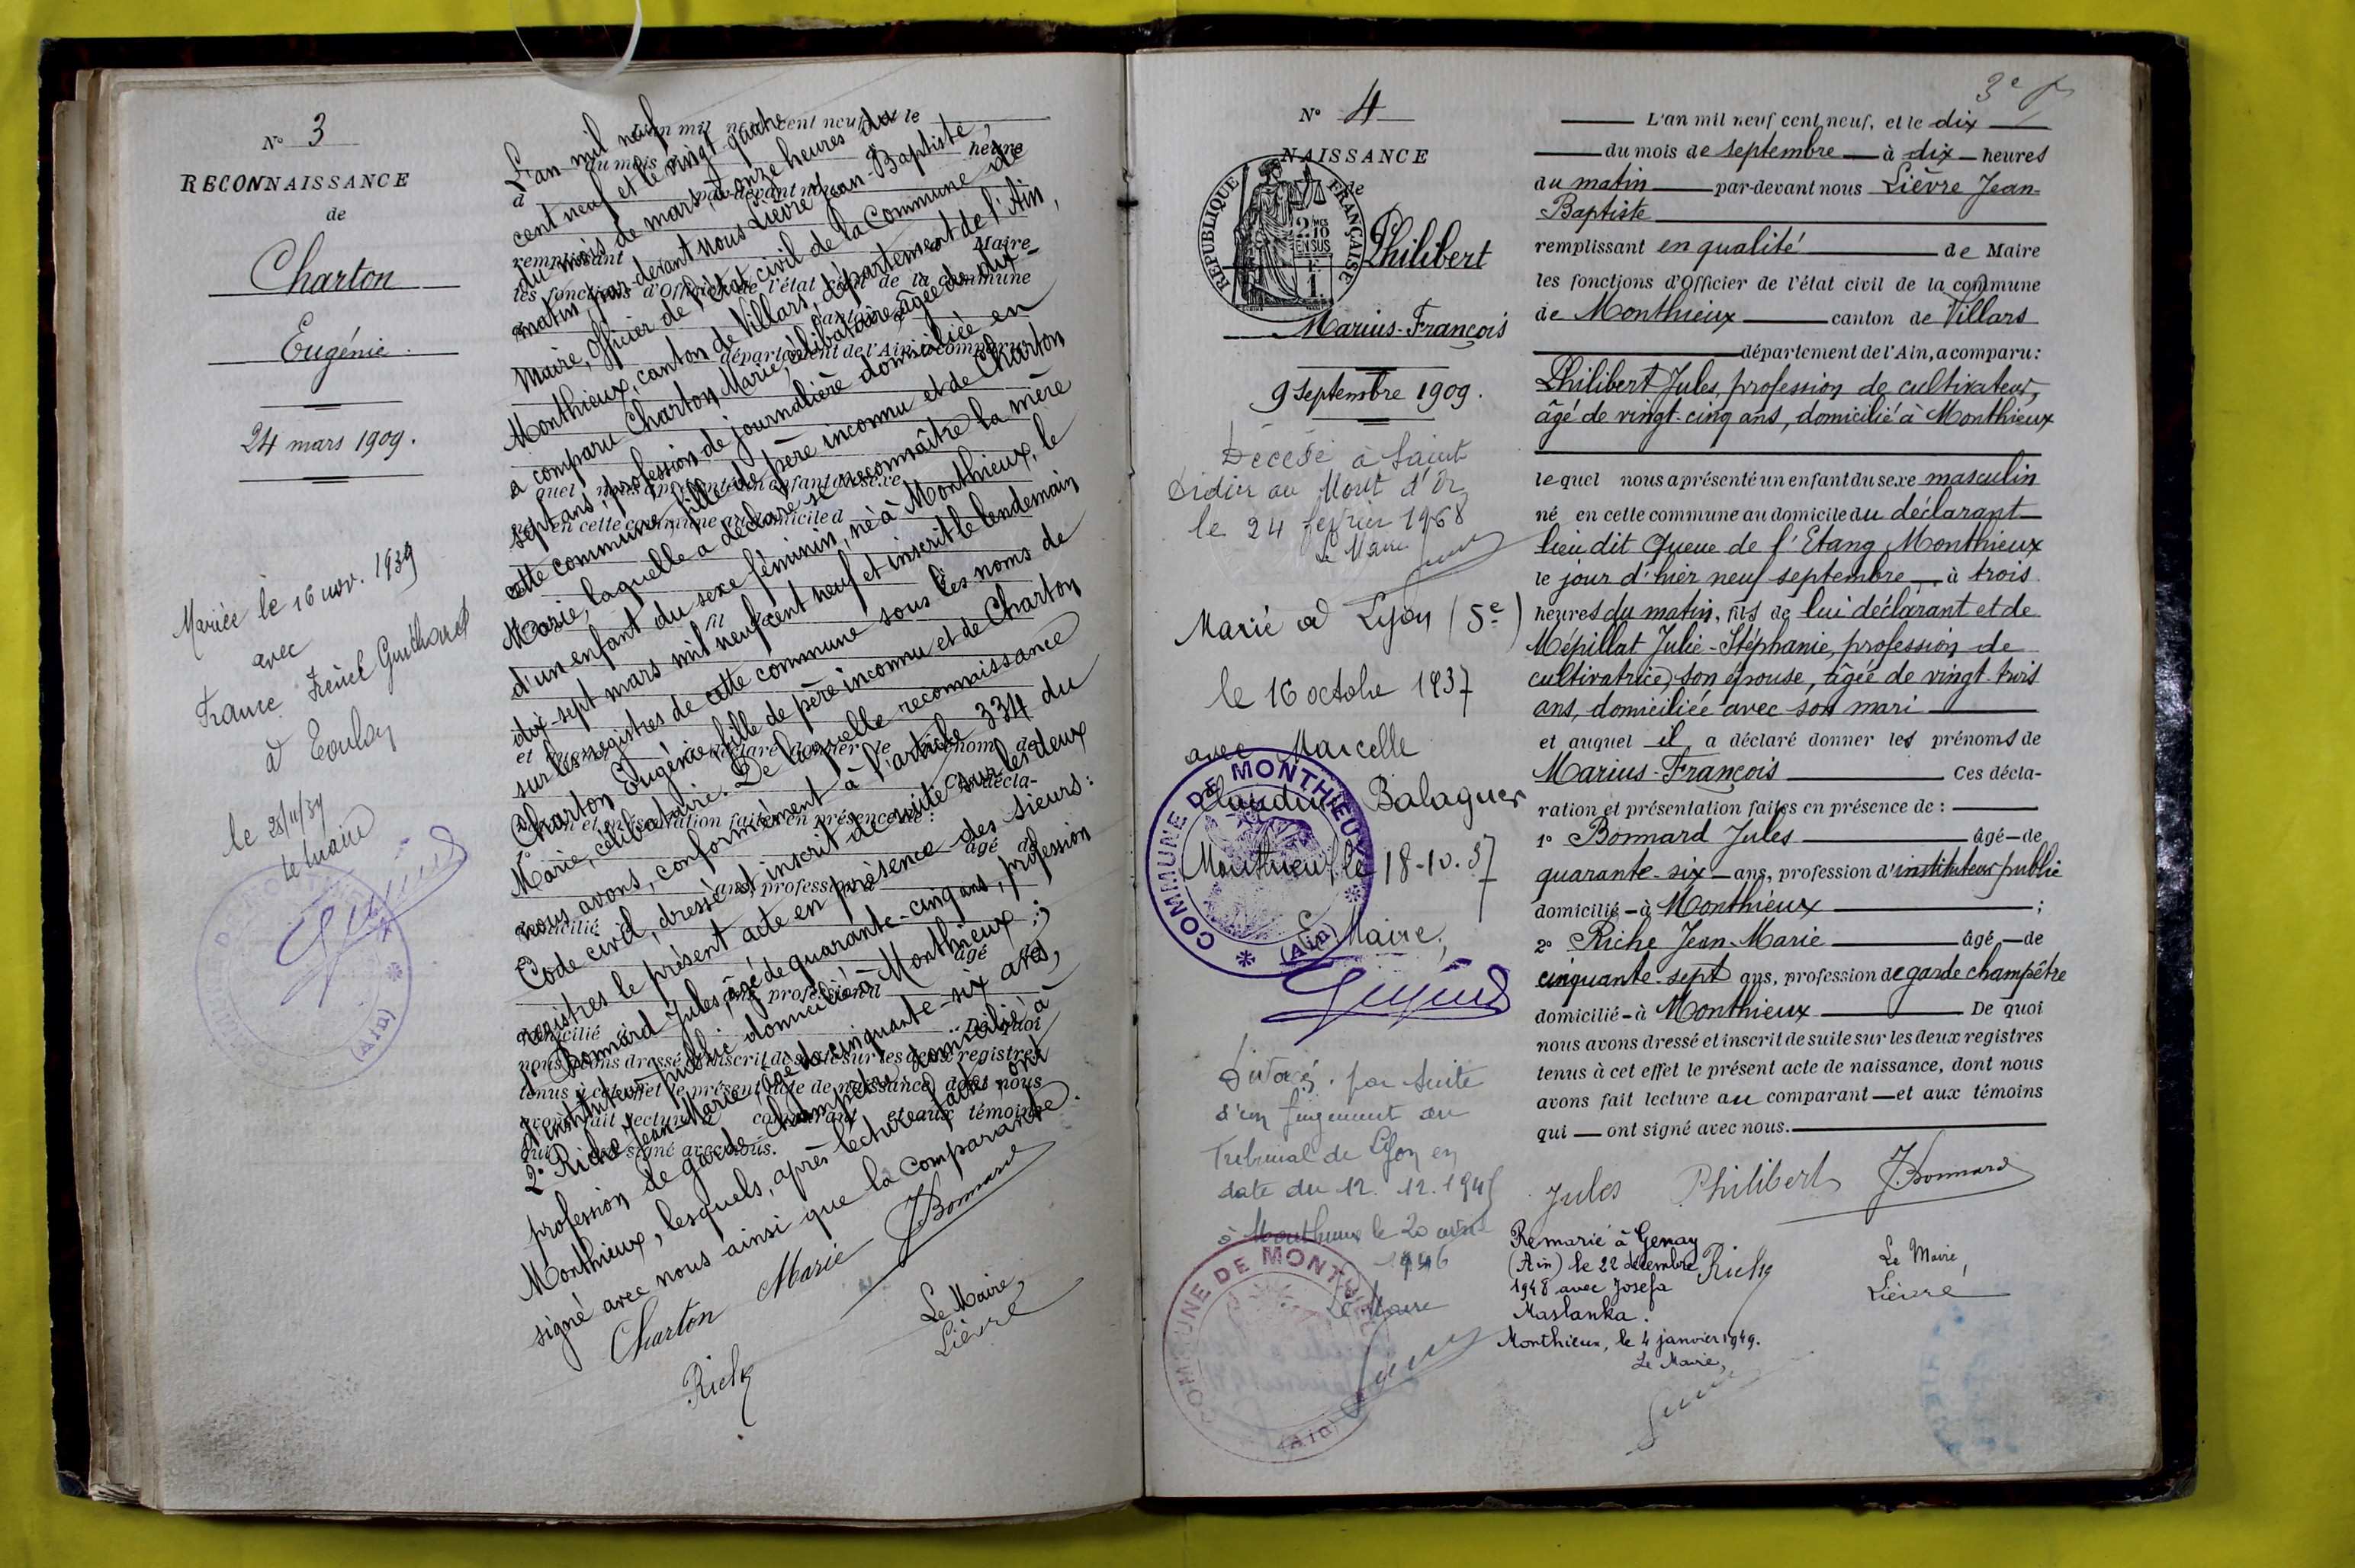 N° 3
RECONNAISSANCE
de
Charton
Eugénie.
24 mars 1909.
Mariée le 16 nov. 1939
avec
à Toulon
le 25/11/39
le maire
(Ain)
L'an mil neuf
cent neuf et le vingt-quatre
du mois de mars, à onze heures du
matin, par-devant nous Lièvre Jean-Baptiste,
Maire, Officier de l'état civil de la Commune de
Monthieux, canton de Villars, département de l'Ain,
a comparu Charton Marie, célibataire, âgée de dix-
sept ans, profession de journalière domiciliée en
cette commune, fille de père inconnu et de Charton
Marie, laquelle a déclaré se reconnaître la mère
d'un enfant du sexe féminin, né à Monthieux, le
dix-sept mars mil neuf cent neuf et inscrit le lendemain
sur les registres de cette commune sous les noms de
Charton Eugénie, fille de père inconnu et de Charton
Marie, célibataire. De laquelle reconnaissance
nous avons, conformément à l'article 334 du
Code civil, dressé et inscrit de suite sur les deux
registres le présent acte en présence des sieurs:
1° Bonnard Jules, âgé de quarante-cinq ans, profession
d'instituteur public domicilié à Monthieux;
2° Riche Jean-Marie, âgé de cinquante-six ans,
profession de garde champêtre domicilié à
Monthieux, lesquels, après lecture faite, ont
signé avec nous ainsi que la comparante.
Charton Marie JBonnard
Riche
Le Maire,
Lièvre
N° 4
NAISSANCE
de
REPUBLIQUE FRANÇAISE
2/10
EN SUS
Philibert
Marius-François
9 septembre 1909.
Décédé à Saint
Didier au Mont d'Or
le 24 février 1968
Le Maire
Marié à Lyon (5e)
le 16 octobre 1937
avec Marcelle
Claudine Balaguer
Monthieux le 18-10.37
Le Maire,
COMMUNE DE MONTHIEUX
(Ain)
Divorcé par suite
d'un jugement du
Tribunal de Lyon en
date du 12. 12. 1945
à Monthieux le 20 avril
1946
Le Maire
COMMUNE DE MONTHIEUX
(Ain)
L'an mil neuf cent neuf, et le dix
du mois de septembre à dix heures
du matin par-devant nous Lièvre Jean-
Baptiste
remplissant en qualité de Maire
les fonctions d'Officier de l'état civil de la commune
de Monthieux canton de Villars
département de l'Ain, a comparu:
Philibert Jules, profession de cultivateur,
âgé de vingt-cinq ans, domicilié à Monthieux
lequel nous a présenté un enfant du sexe masculin
né en cette commune au domicile du déclarant
lieu dit Queue de l'Etang, Monthieux
le jour d'hier neuf septembre, à trois
heures du matin, fils de lui déclarant et de
Mépillat Julie-Stéphanie, profession de
cultivatrice, son épouse, âgée de vingt-trois
ans, domiciliée avec son mari
et auquel il a déclaré donner les prénoms de
Marius-François Ces décla-
ration et présentation faites en présence de:
1° Bonnard Jules âgé de
quarante-six ans, profession d'instituteur public
domicilié à Monthieux;
2° Riche Jean-Marie âgé de
cinquante-sept ans, profession de garde champêtre
domicilié à Monthieux De quoi
nous avons dressé et inscrit de suite sur les deux registres
tenus à cet effet le présent acte de naissance, dont nous
avons fait lecture au comparant et aux témoins
qui ont signé avec nous.
Jules Philibert JBonnard
Riche
Le Maire,
Lièvre
Remarié à Genay
(Ain) le 22 décembre
1948 avec Josefa
Maslanka.
Monthieux, le 4 janvier 1949.
Le Maire,